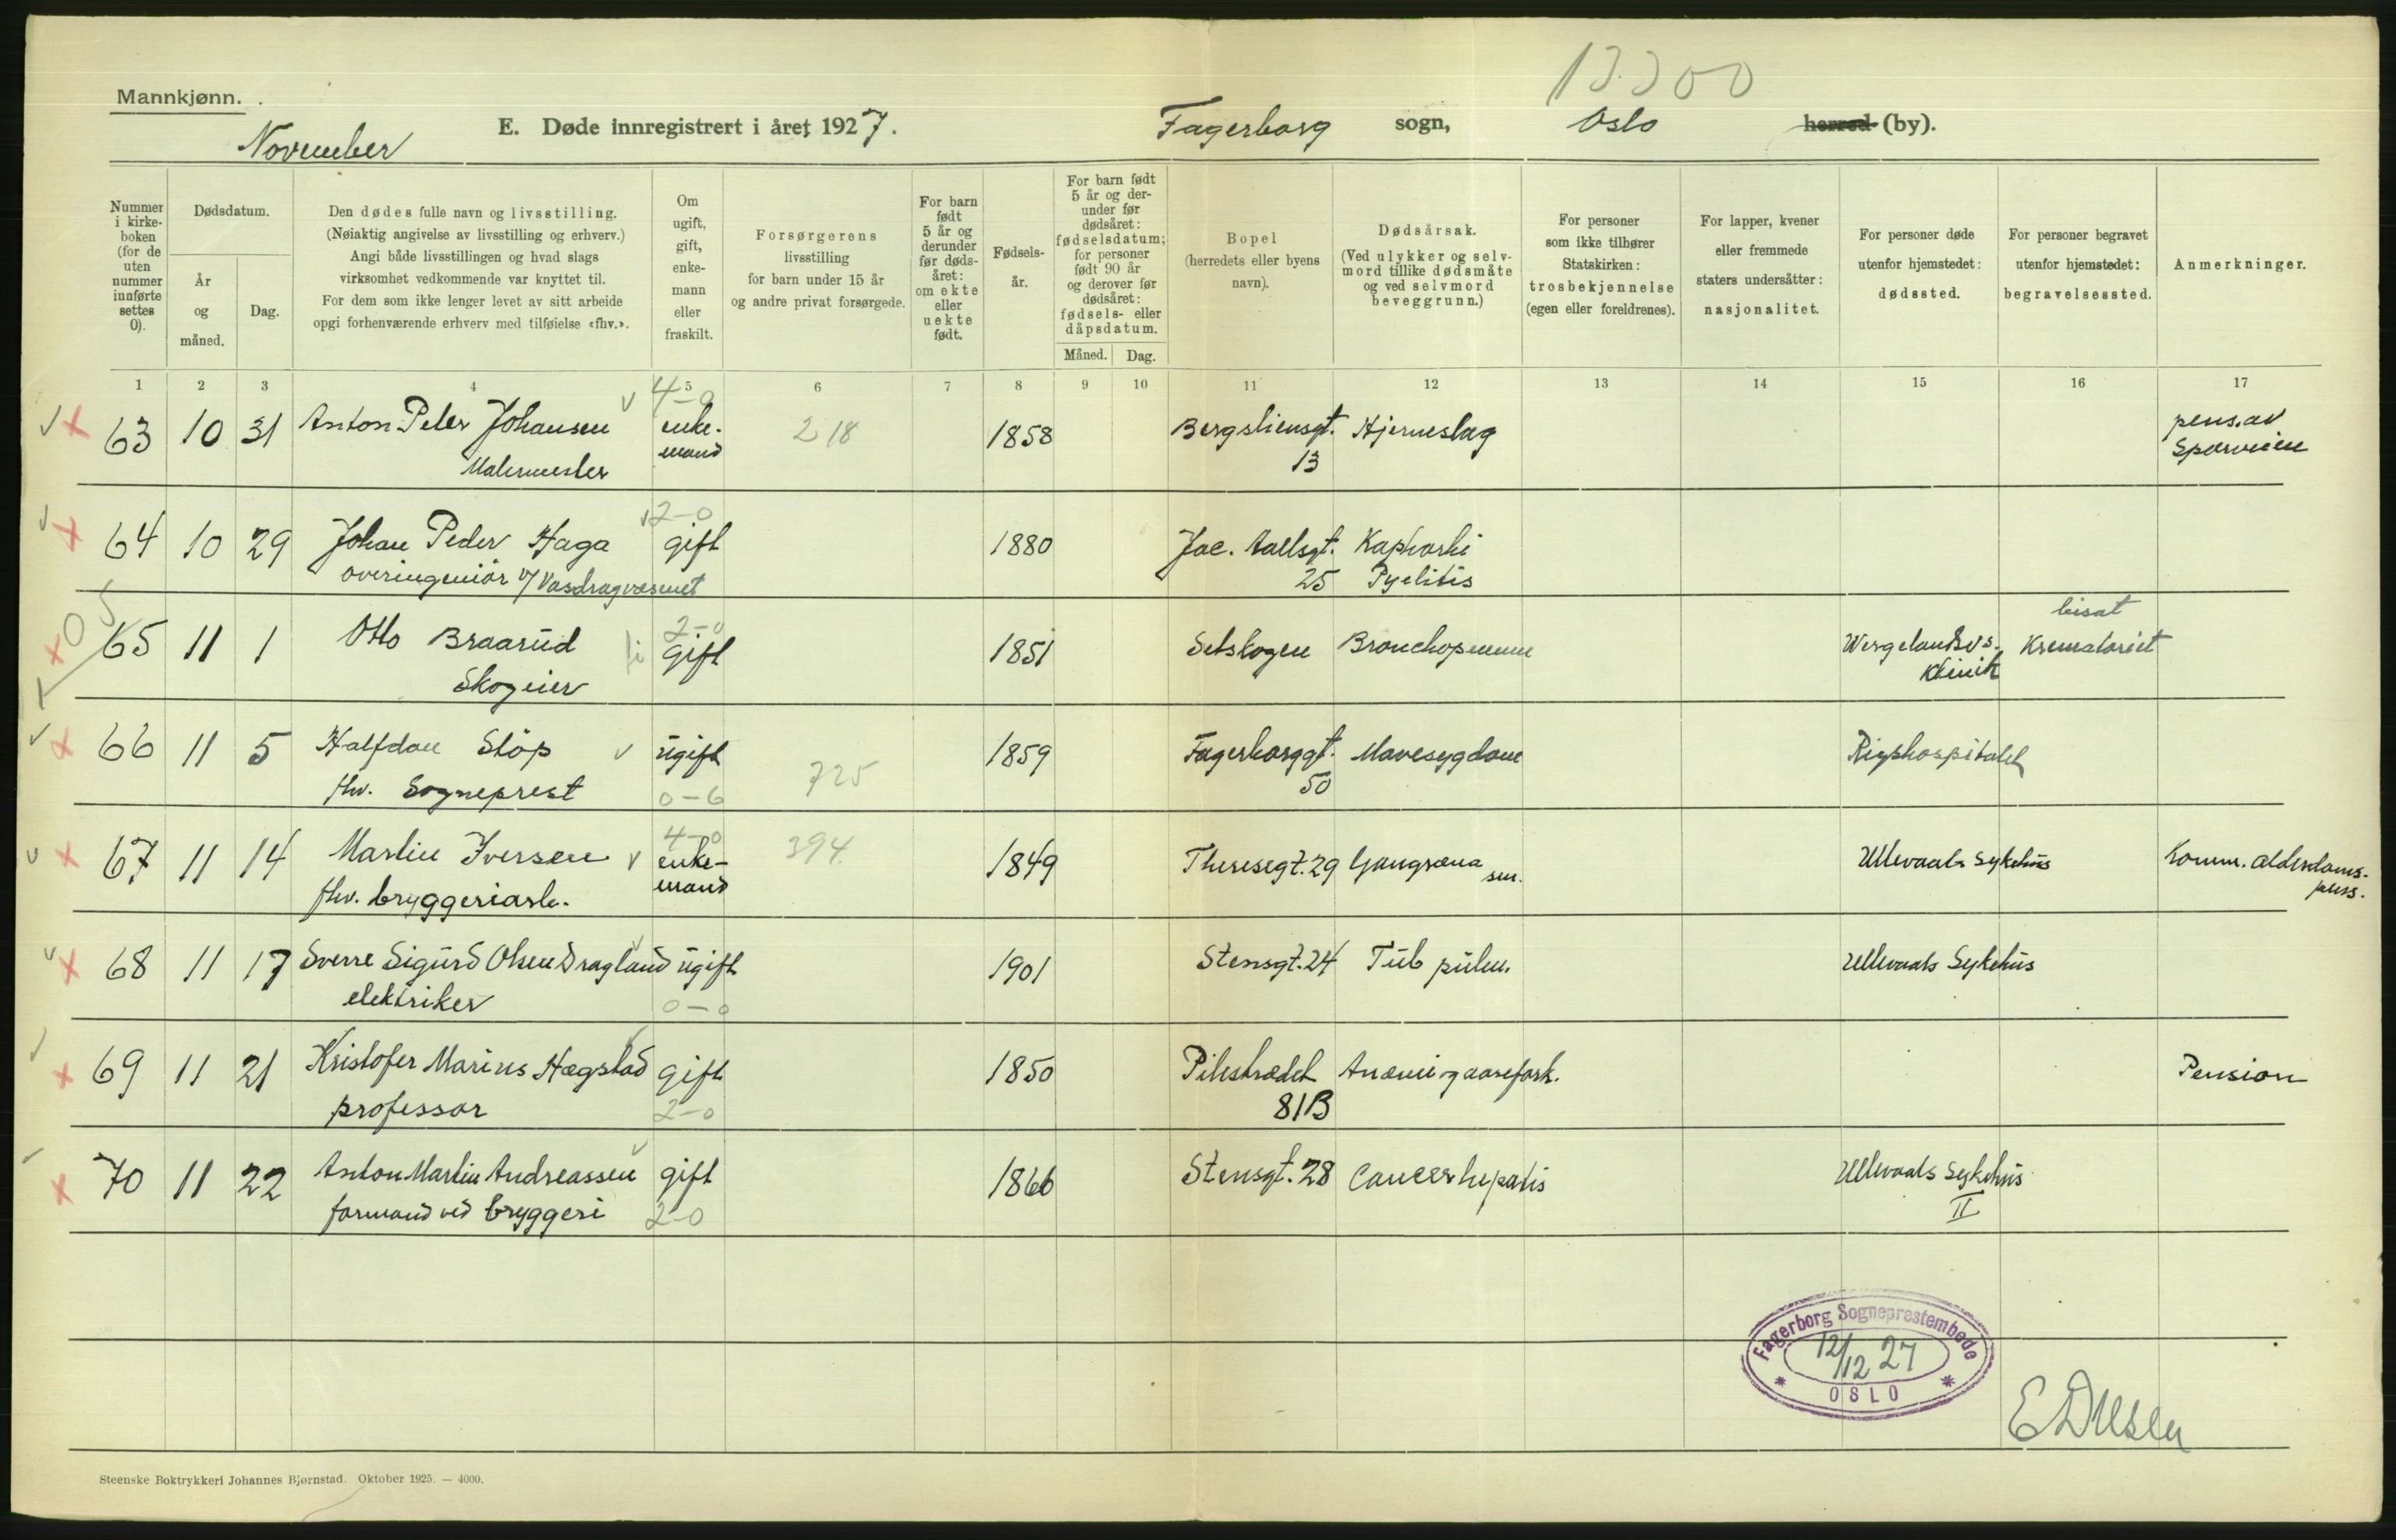 13300
Mannkjønn.
November
E. Døde innregistrert i året 1927.
Fagerborg sogn, Oslo herred (by).
Nummer i kirkeboken (for de uten nummer innførte settes 0).
Dødsdatum.
År og måned.
Dag.
Den dødes fulle navn og livsstilling.
(Nøiaktig angivelse av livsstilling og erhverv.)
Angi både livsstillingen og hvad slags
virksomhet vedkommende var knyttet til.
For dem som ikke lenger levet av sitt arbeide
opgi forhenværende erhverv med tilføielse «fhv.».
Om ugift, gift, enkemann eller fraskilt.
Forsørgerens
livsstilling
for barn under 15 år
og andre privat forsørgede.
For barn født 5 år og derunder før dødsåret: om ekte eller uekte født.
Fødselsår.
For barn født 5 år og derunder før dødsåret: fødselsdatum; for personer født 90 år og derover før dødsåret: fødsels- eller dåpsdatum.
Måned. Dag.
Bopel
(herredets eller byens
navn).
Dødsårsak.
(Ved ulykker og selvmord tillike dødsmåte og ved selvmord beveggrunn.)
For personer
som ikke tilhører
Statskirken:
trosbekjennelse
(egen eller foreldrenes).
For lapper, kvener
eller fremmede
staters undersåtter:
nasjonalitet.
For personer døde
utenfor hjemstedet:
dødssted.
For personer begravet
utenfor hjemstedet:
begravelsessted.
Anmerkninger.
1 2 3 4 5 6 7 8 9 10 11 12 13 14 15 16 17
4-0
63 10 31 Anton Peter Johansen enke- 218 1858 Bergsliensgt. Hjerneslag pens. av
Malermester mand 13 Sporveien
2-0
64 10 29 Johan Peder Haga gift 1880 Jac. Aallsgt.
overingeniör v/ Vasdragvæsenet 25 Pyelitis
2-0 bisat
65 11 1 Otto Braarud gift 1851 Setskogen Bronchopneum Wergelandsvs. Krematoriet
Skogeier Klinik
66 11 5 Halfdan Stöp ugift 725 1859 Fagerborggt. Mavesygdom Rigshospitalet
fhv. Sogneprest 0-6 50
4-0
67 11 14 Martin Iversen enke- 394 1849 Theresegt. 29 Gangræna sen. Ullevaals Sykehus Komm. alderdoms-
fhv. bryggeriarb. mand pens.
68 11 17 Sverre Sigurd Olsen Dragland ugift 1901 Stensgt. 24 Tub pulm. Ullevaals Sykehus
elektriker 0-0
69 11 21 Kristofer Marius Hægstad gift 1850 Pilestrædet Anæmi og aarefork. Pension
professor 2-0 81B
70 11 22 Anton Martin Andreassen gift 1866 Stensgt. 28 Cancer hepatis Ullevaals Sykehus
formand ved bryggeri 2-0 II
Fagerborg Sogneprestembede
12/12 27
* OSLO *
Steenske Boktrykkeri Johannes Bjørnstad. Oktober 1925. — 4000.